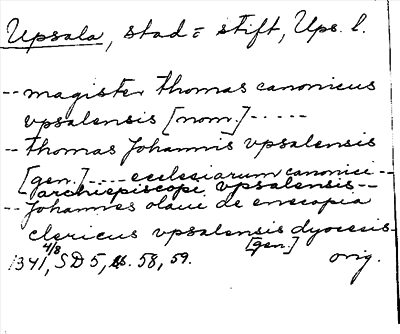 Upsala, stad = stift, Ups. l.
-- magister thomas canonicus
vpsalensis [nom.] -----
-- thomas Johannis vpsalensis
[gen.] ---- ecclesiarum canonici --
archiepiscopi vpsalensis --
-- Johannes olaui de enecopia
clericus vpsalensis dyocesis
[gen.]
1341 4/8, SD 5, s. 58, 59. orig.